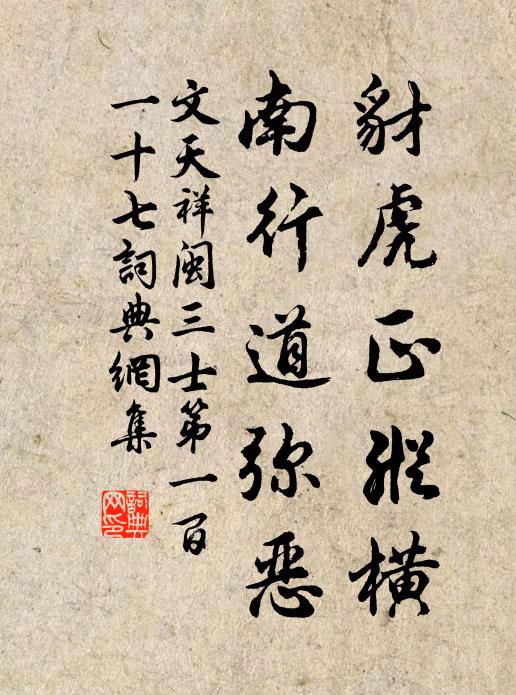 豺虎正縱橫
南行道彌惡
文天祥閩三士第一百
一十七詞典網集
詞典
网印